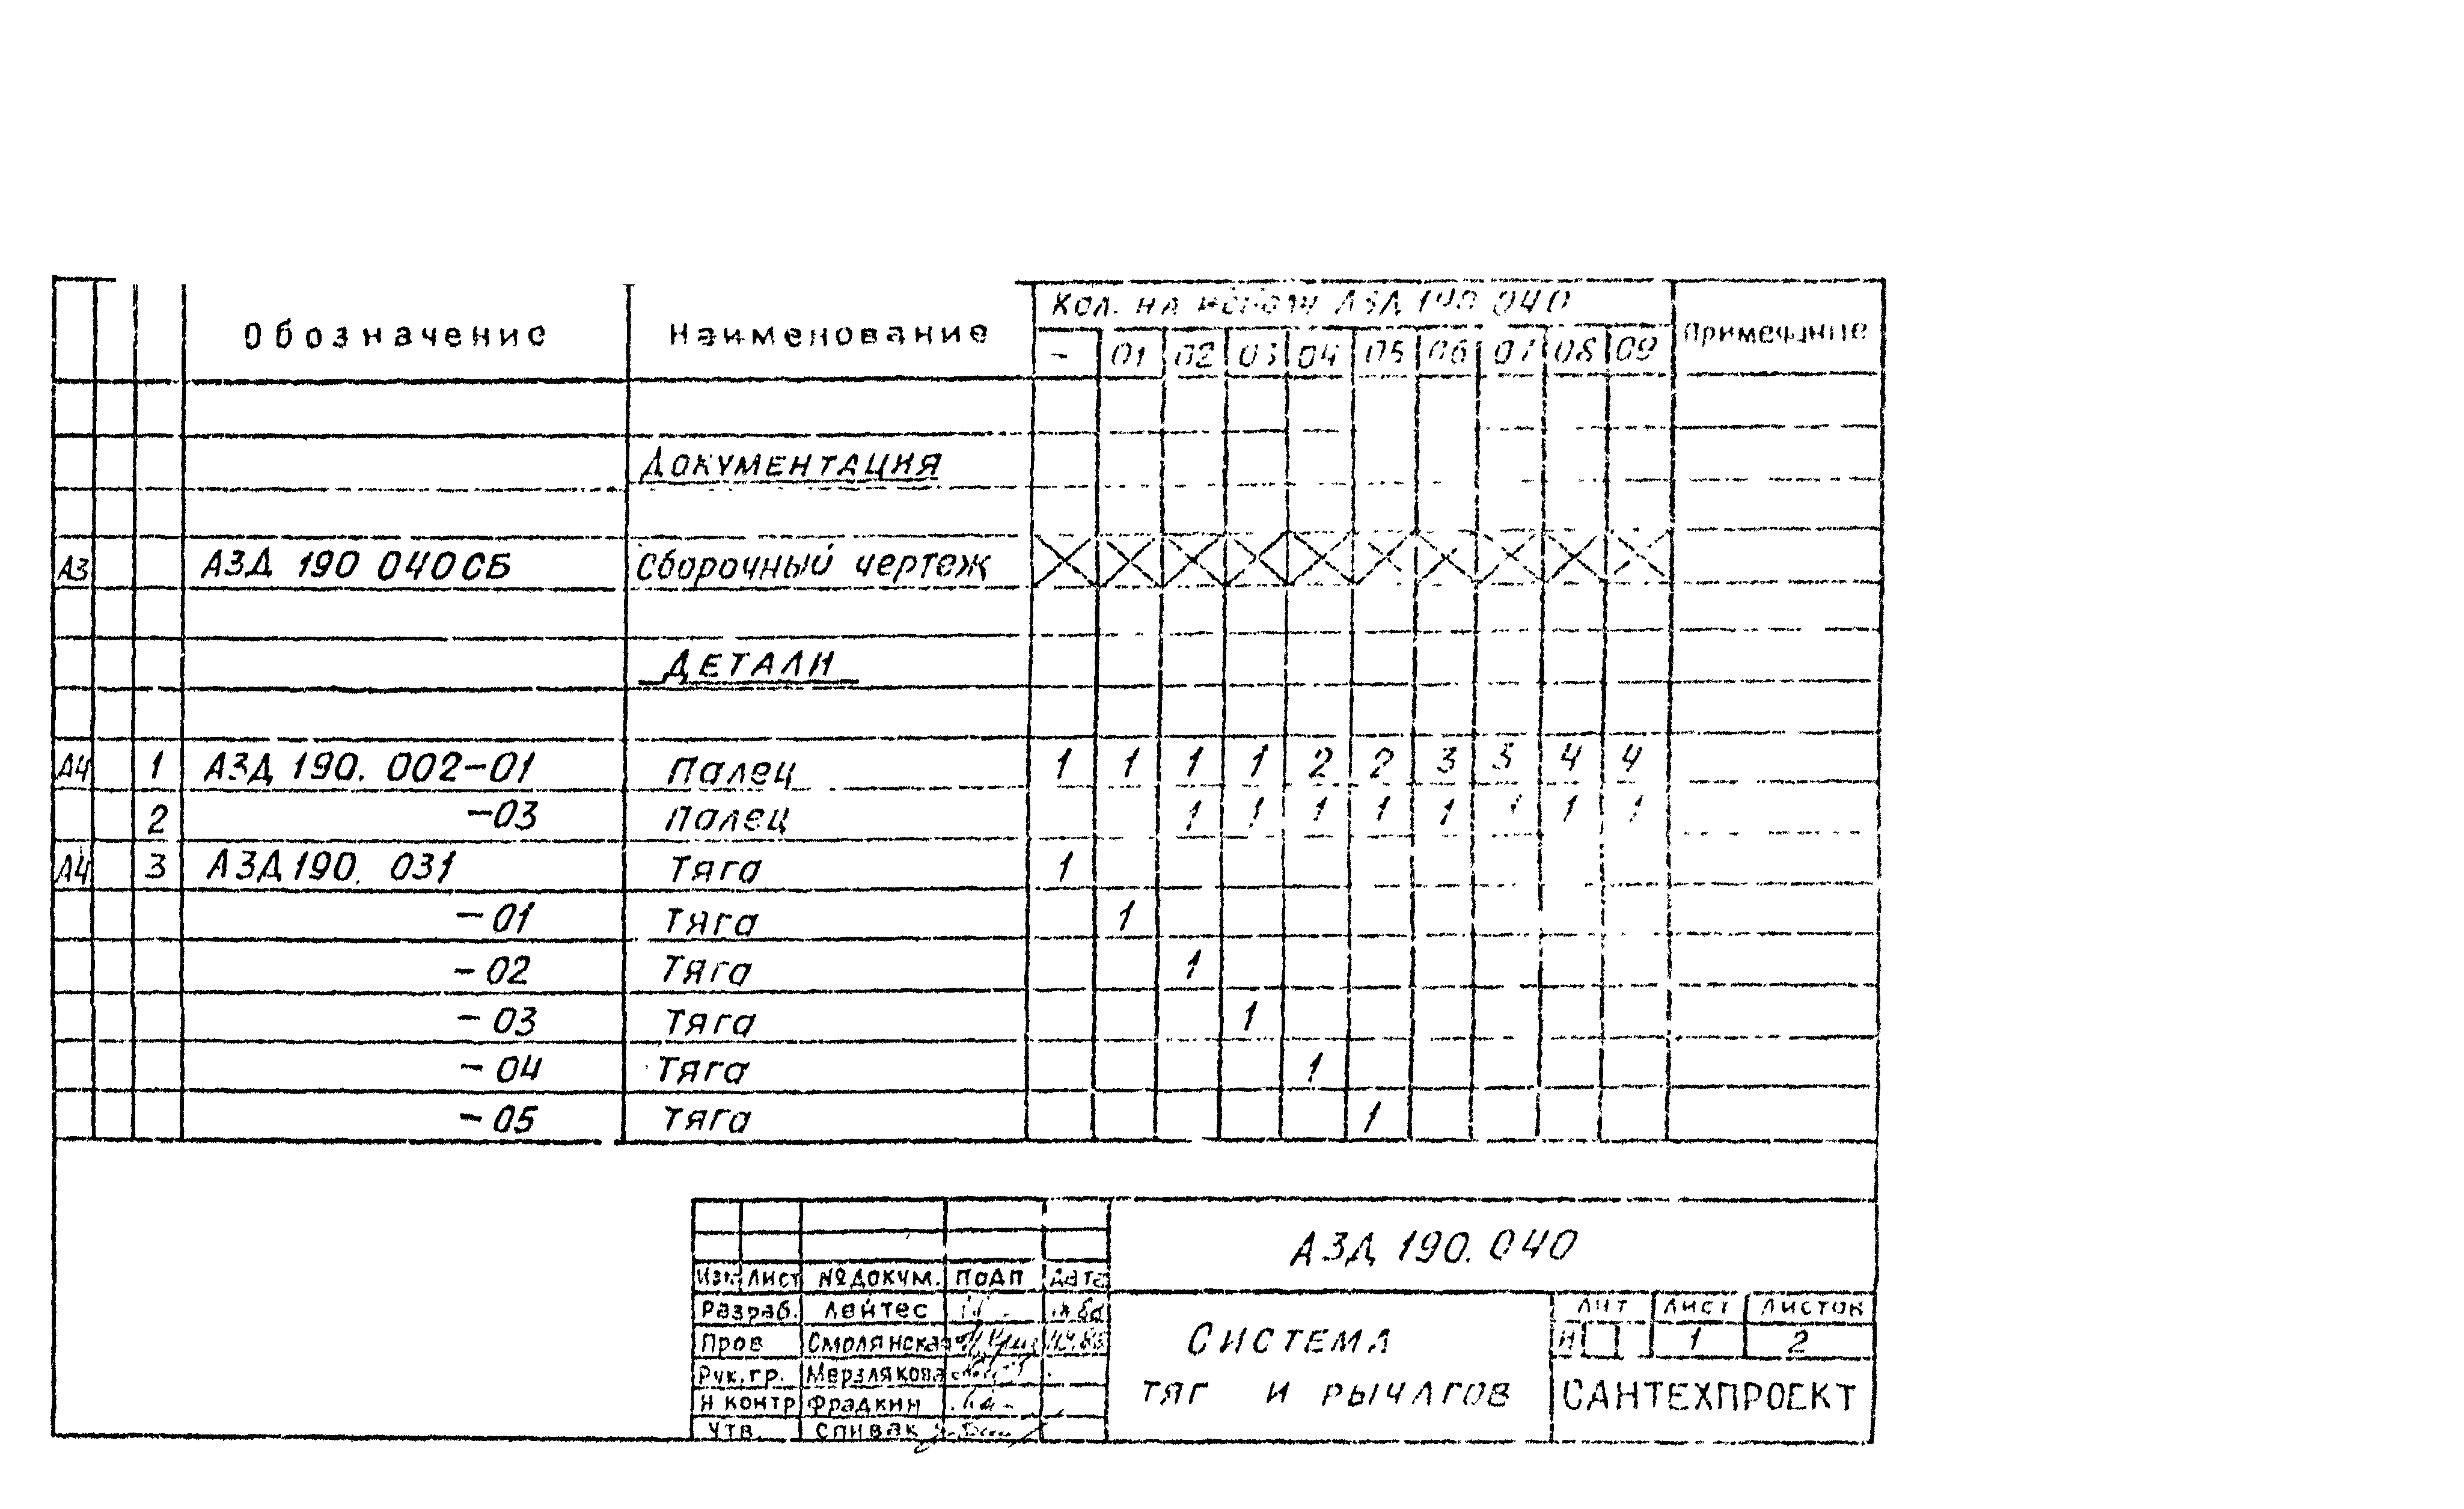 Обозначение Наименование Кол. на исполн АЗД 190 040 Примечание
– 01 02 03 04 05 06 07 08 09
ДОКУМЕНТАЦИЯ
А3 АЗД 190 040СБ Сборочный чертеж
ДЕТАЛИ
А4 1 АЗД 190. 002-01 Палец 1 1 1 1 2 2 3 3 4 4
2 -03 Палец 1 1 1 1 1 1 1 1
А4 3 АЗД 190. 031 Тяга 1
-01 Тяга 1
-02 Тяга 1
-03 Тяга 1
-04 Тяга 1
-05 Тяга 1
АЗД 190. 040
Изм Лист № докум. Подп Дата
Разраб. Лейтес
Пров Смолянская
Рук. гр. Мерзлякова
Н контр Фрадкин
Утв. Спивак
СИСТЕМА
ТЯГ И РЫЧАГОВ
Лит Лист Листов
И 1 2
САНТЕХПРОЕКТ